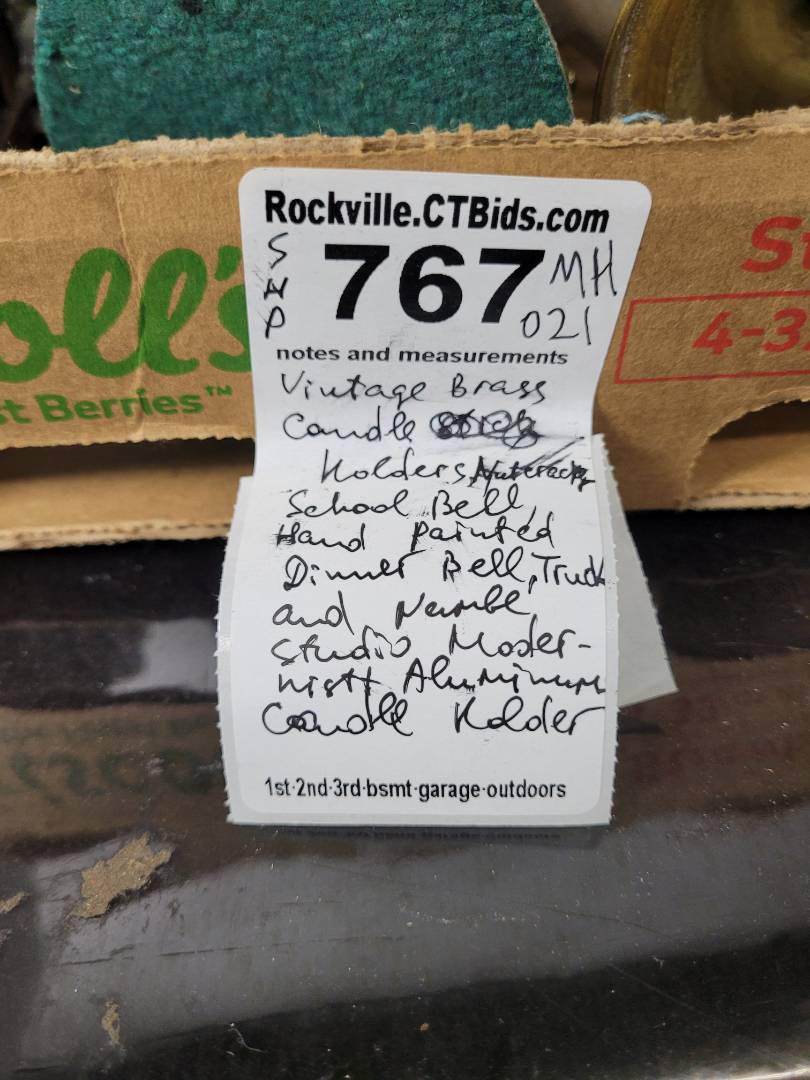 Rockville.CTBids.com
SWP 767 MH
021
notes and measurements
Vintage Brass
Candle
Holders, Nutcracker
School Bell,
Hand Painted
Dinner Bell, Truck
and Nambe
Studio Moder-
nist Aluminum
Candle Holder
1st·2nd·3rd·bsmt·garage·outdoors
oll's
st Berries™
4-3